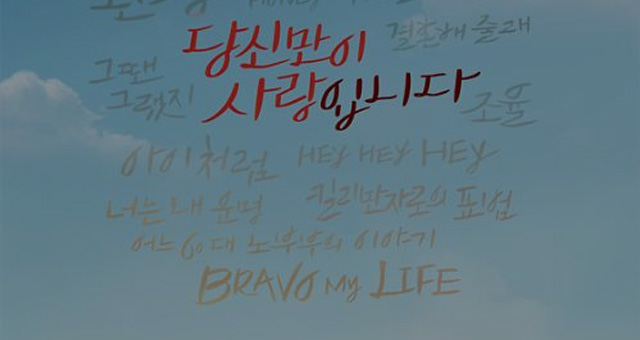 당신만이
결혼해 줄래
그땐
그랬지
사랑입니다
조율
아이처럼 HEY HEY HEY
너는 내 운명 킬리만자로의 표범
어느 60대 노부부의 이야기
BRAVO MY LIFE